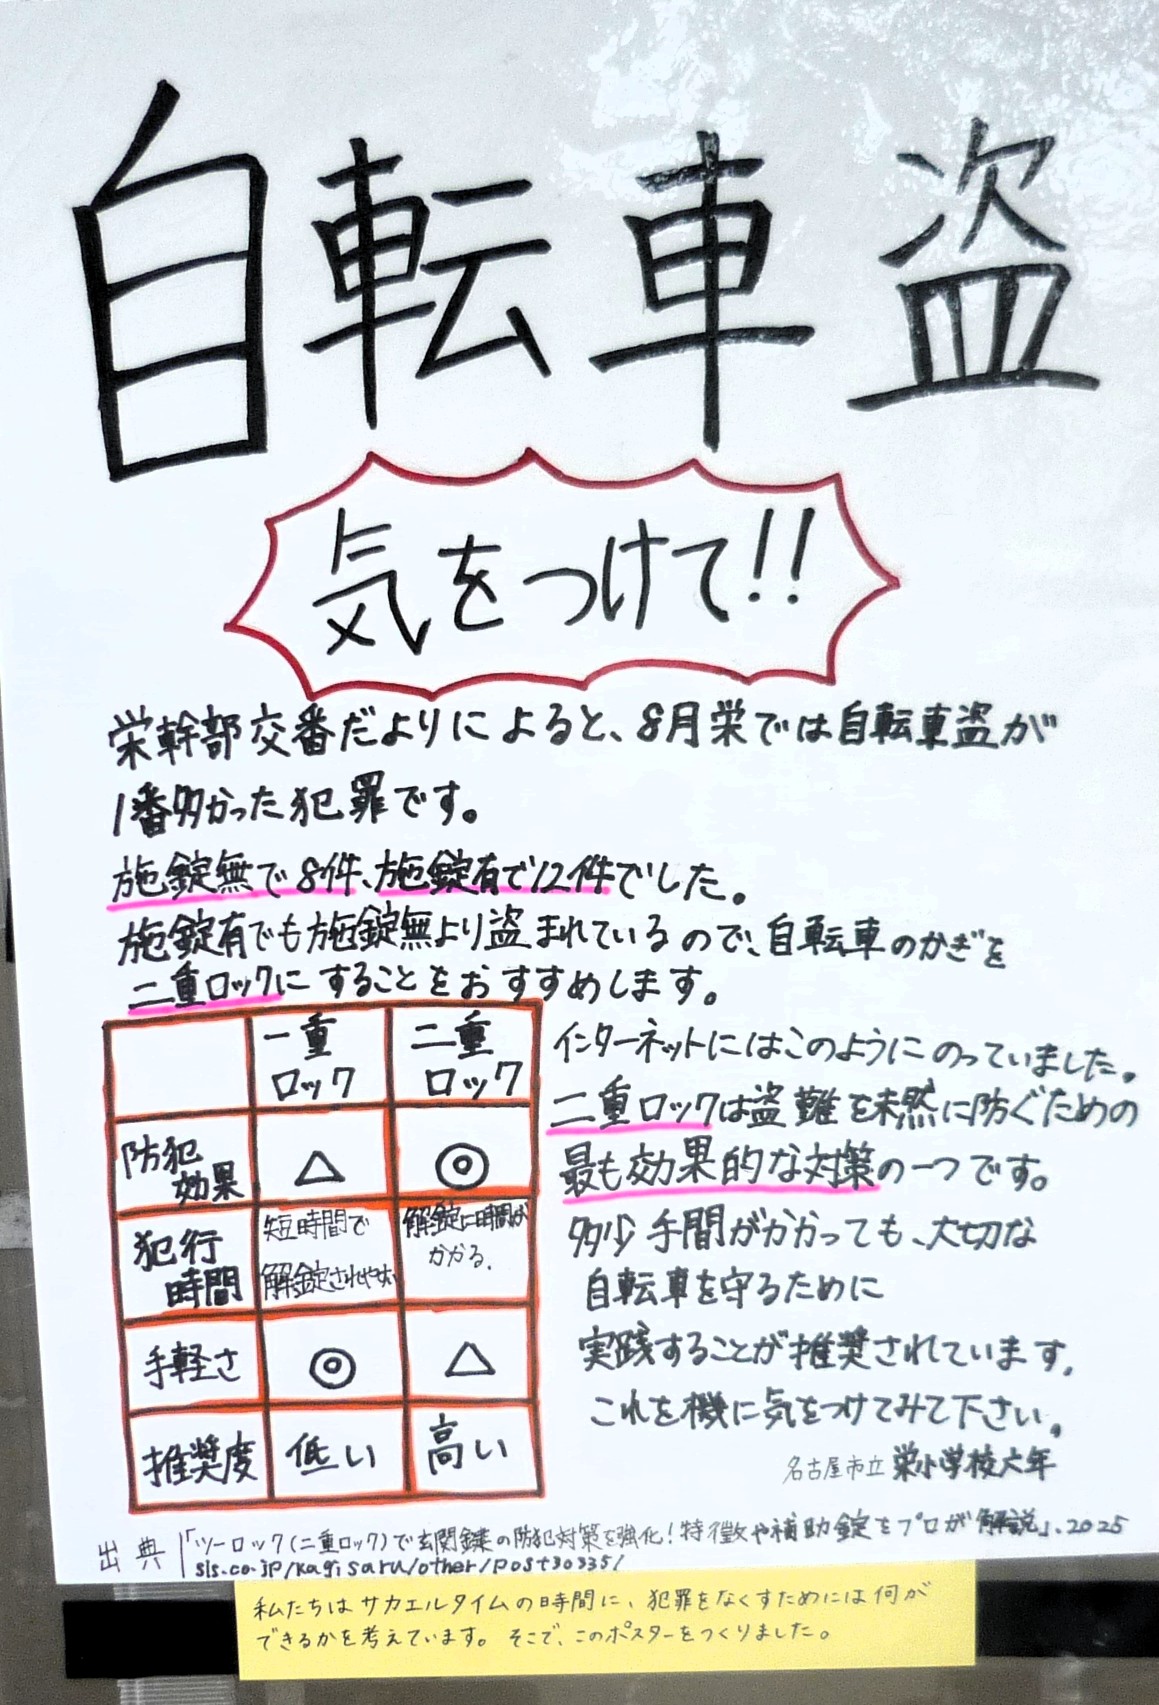 自転車盗
気をつけて!!
栄幹部交番だよりによると、8月栄では自転車盗が
1番多かった犯罪です。
施錠無で8件、施錠有で12件でした。
施錠有でも施錠無より盗まれているので、自転車のかぎを
二重ロックにすることをおすすめします。
一重ロック 二重ロック
防犯効果 △ ◎
犯行時間 短時間で解錠されやすい 解錠に時間がかかる。
手軽さ ◎ △
推奨度 低い 高い
インターネットにはこのようにのっていました。
二重ロックは盗難を未然に防ぐための
最も効果的な対策の一つです。
多少手間がかかっても、大切な
自転車を守るために
実践することが推奨されています。
これを機に気をつけてみて下さい。
名古屋市立栄小学校六年
出典「ツーロック(二重ロック)で玄関鍵の防犯対策を強化!特徴や補助錠をプロが解説」、2025
sls.co.jp/kagisaru/other/post30335/
私たちはサカエルタイムの時間に、犯罪をなくすためには何が
できるかを考えています。そこで、このポスターをつくりました。